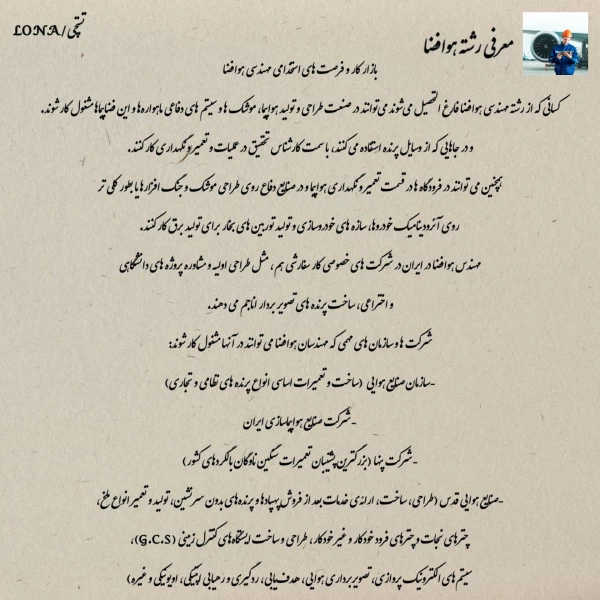 تستچی/LONA
معرفی رشته هوافضا
بازار کار و فرصت های استخدامی مهندسی هوافضا
کسانی که از رشته مهندسی هوافضا فارغ التحصیل می‌شوند می‌توانند در صنعت طراحی و تولید هواپیما، موشک ها و سیتم های دفاعی ماهواره‌ها و این فضاپیماها مشغول کار شوند.
و در جاهایی که از وسایل پرنده استفاده می کنند، با سمت کارشناس تحقیق در عملیات و تعمیر و نگهداری کار کنند.
همچنین می توانند در فرودگاه ها در قسمت تعمیر و نگهداری هواپیما و در صنایع دفاع روی طراحی موشک و جنگ افزارها یا بطور کلی تر
روی آئرودینامیک خودروها، سازه های خودروسازی و تولید توربین های بخار برای تولید برق کار کنند.
مهندس هوافضا در ایران در شرکت های خصوصی کار سفارشی هم ، مثل طراحی اولیه و مشاوره پروژه های دانشگاهی
و اختراعی، ساخت پرنده های تصویر بردار اناجم می دهند.
شرکت ها و سازمان های مهمی که مهندسان هوافضا می توانند در آنها مشغول کار شوند:
-سازمان صنایع هوایی (ساخت و تعمیرات اساسی انواع پرنده های نظامی و تجاری)
-شرکت صنایع هواپیماسازی ایران
-شرکت پنها (بزرگترین پشتیبان تعمیرات سنگین ناوگان بالگردهای کشور)
-صنایع هوایی قدس (طراحی، ساخت، ارائه‌ی خدمات بعد از فروش پهپادها و پرنده‌های بدون سرنشین، تولید و تعمیر انواع ملخ،
چترهای نجات و چترهای فرود خودکار و غیر خودکار، طراحی و ساخت ایستگاه‌های کنترل زمینی (G.C.S)،
سیتم های الکترونیک پروازی، تصویربرداری هوایی، هدف‌یابی، ردگیری و رهیابی اپتیکی، اویونیکی و غیره)